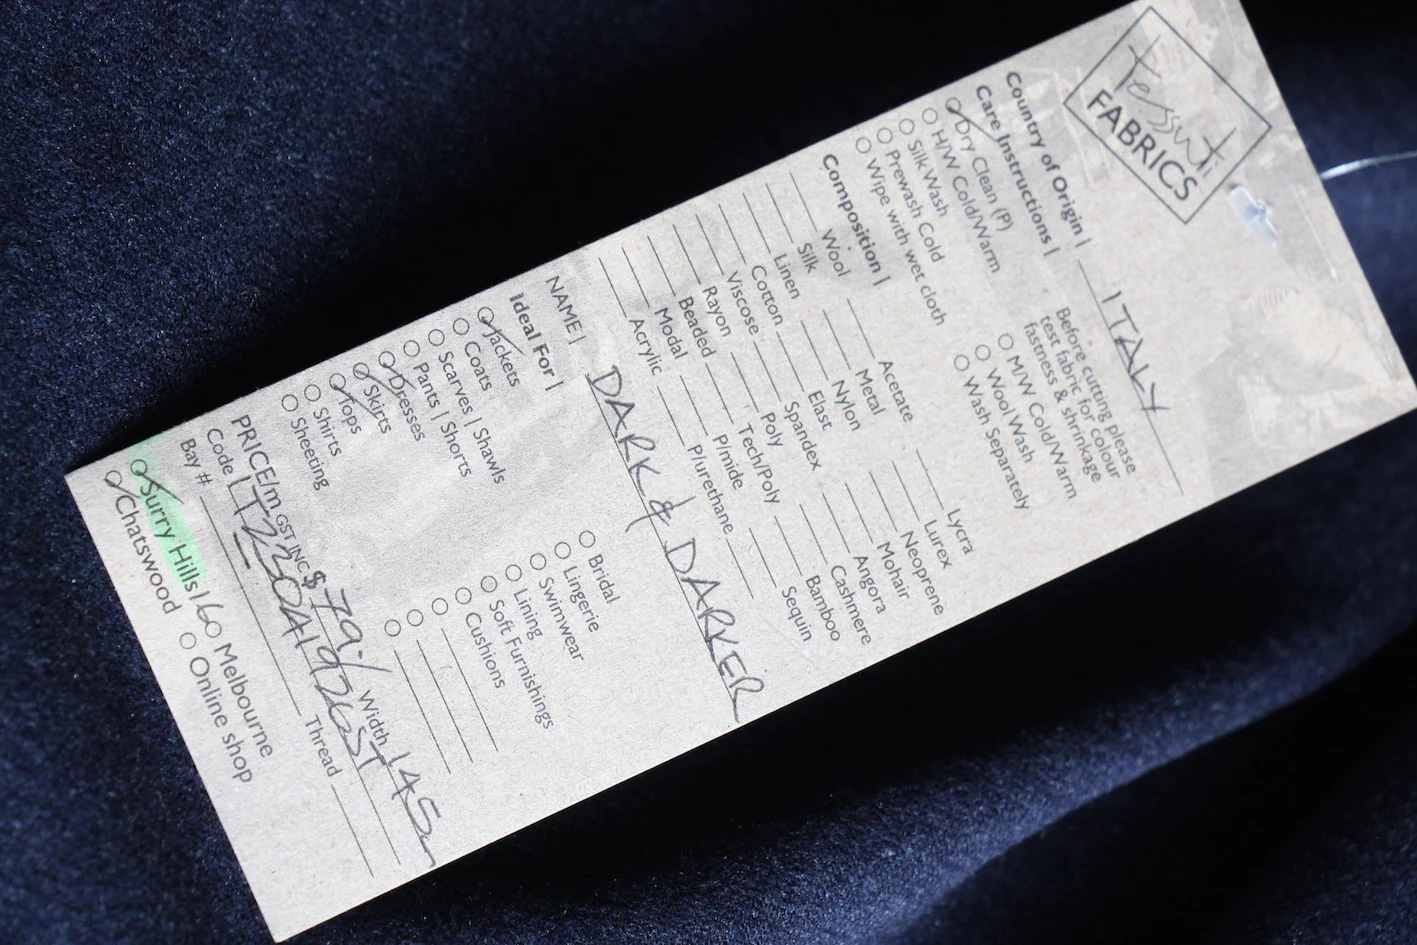 tessuti
FABRICS
Country of Origin | ITALY
Care Instructions | Before cutting please
test fabric for colour
fastness & shrinkage
Dry Clean (P)
H/W Cold/Warm M/W Cold/Warm
Silk Wash Wool Wash
Prewash Cold Wash Separately
Wipe with wet cloth
Composition |
Wool Acetate Lycra
Silk Metal Lurex
Linen Nylon Neoprene
Cotton Elast Mohair
Viscose Spandex Angora
Rayon Poly Cashmere
Beaded Tech/Poly Bamboo
Modal P/mide Sequin
Acrylic P/urethane
NAME | DARK & DARKER
Ideal For |
Jackets Bridal
Coats Lingerie
Scarves | Shawls Swimwear
Pants | Shorts Lining
Dresses Soft Furnishings
Skirts Cushions
Tops
Shirts
Sheeting
PRICE/m GST INC $ 79./ Width 145
Code
Bay # Thread
Surry Hills 160 Melbourne
Chatswood Online shop